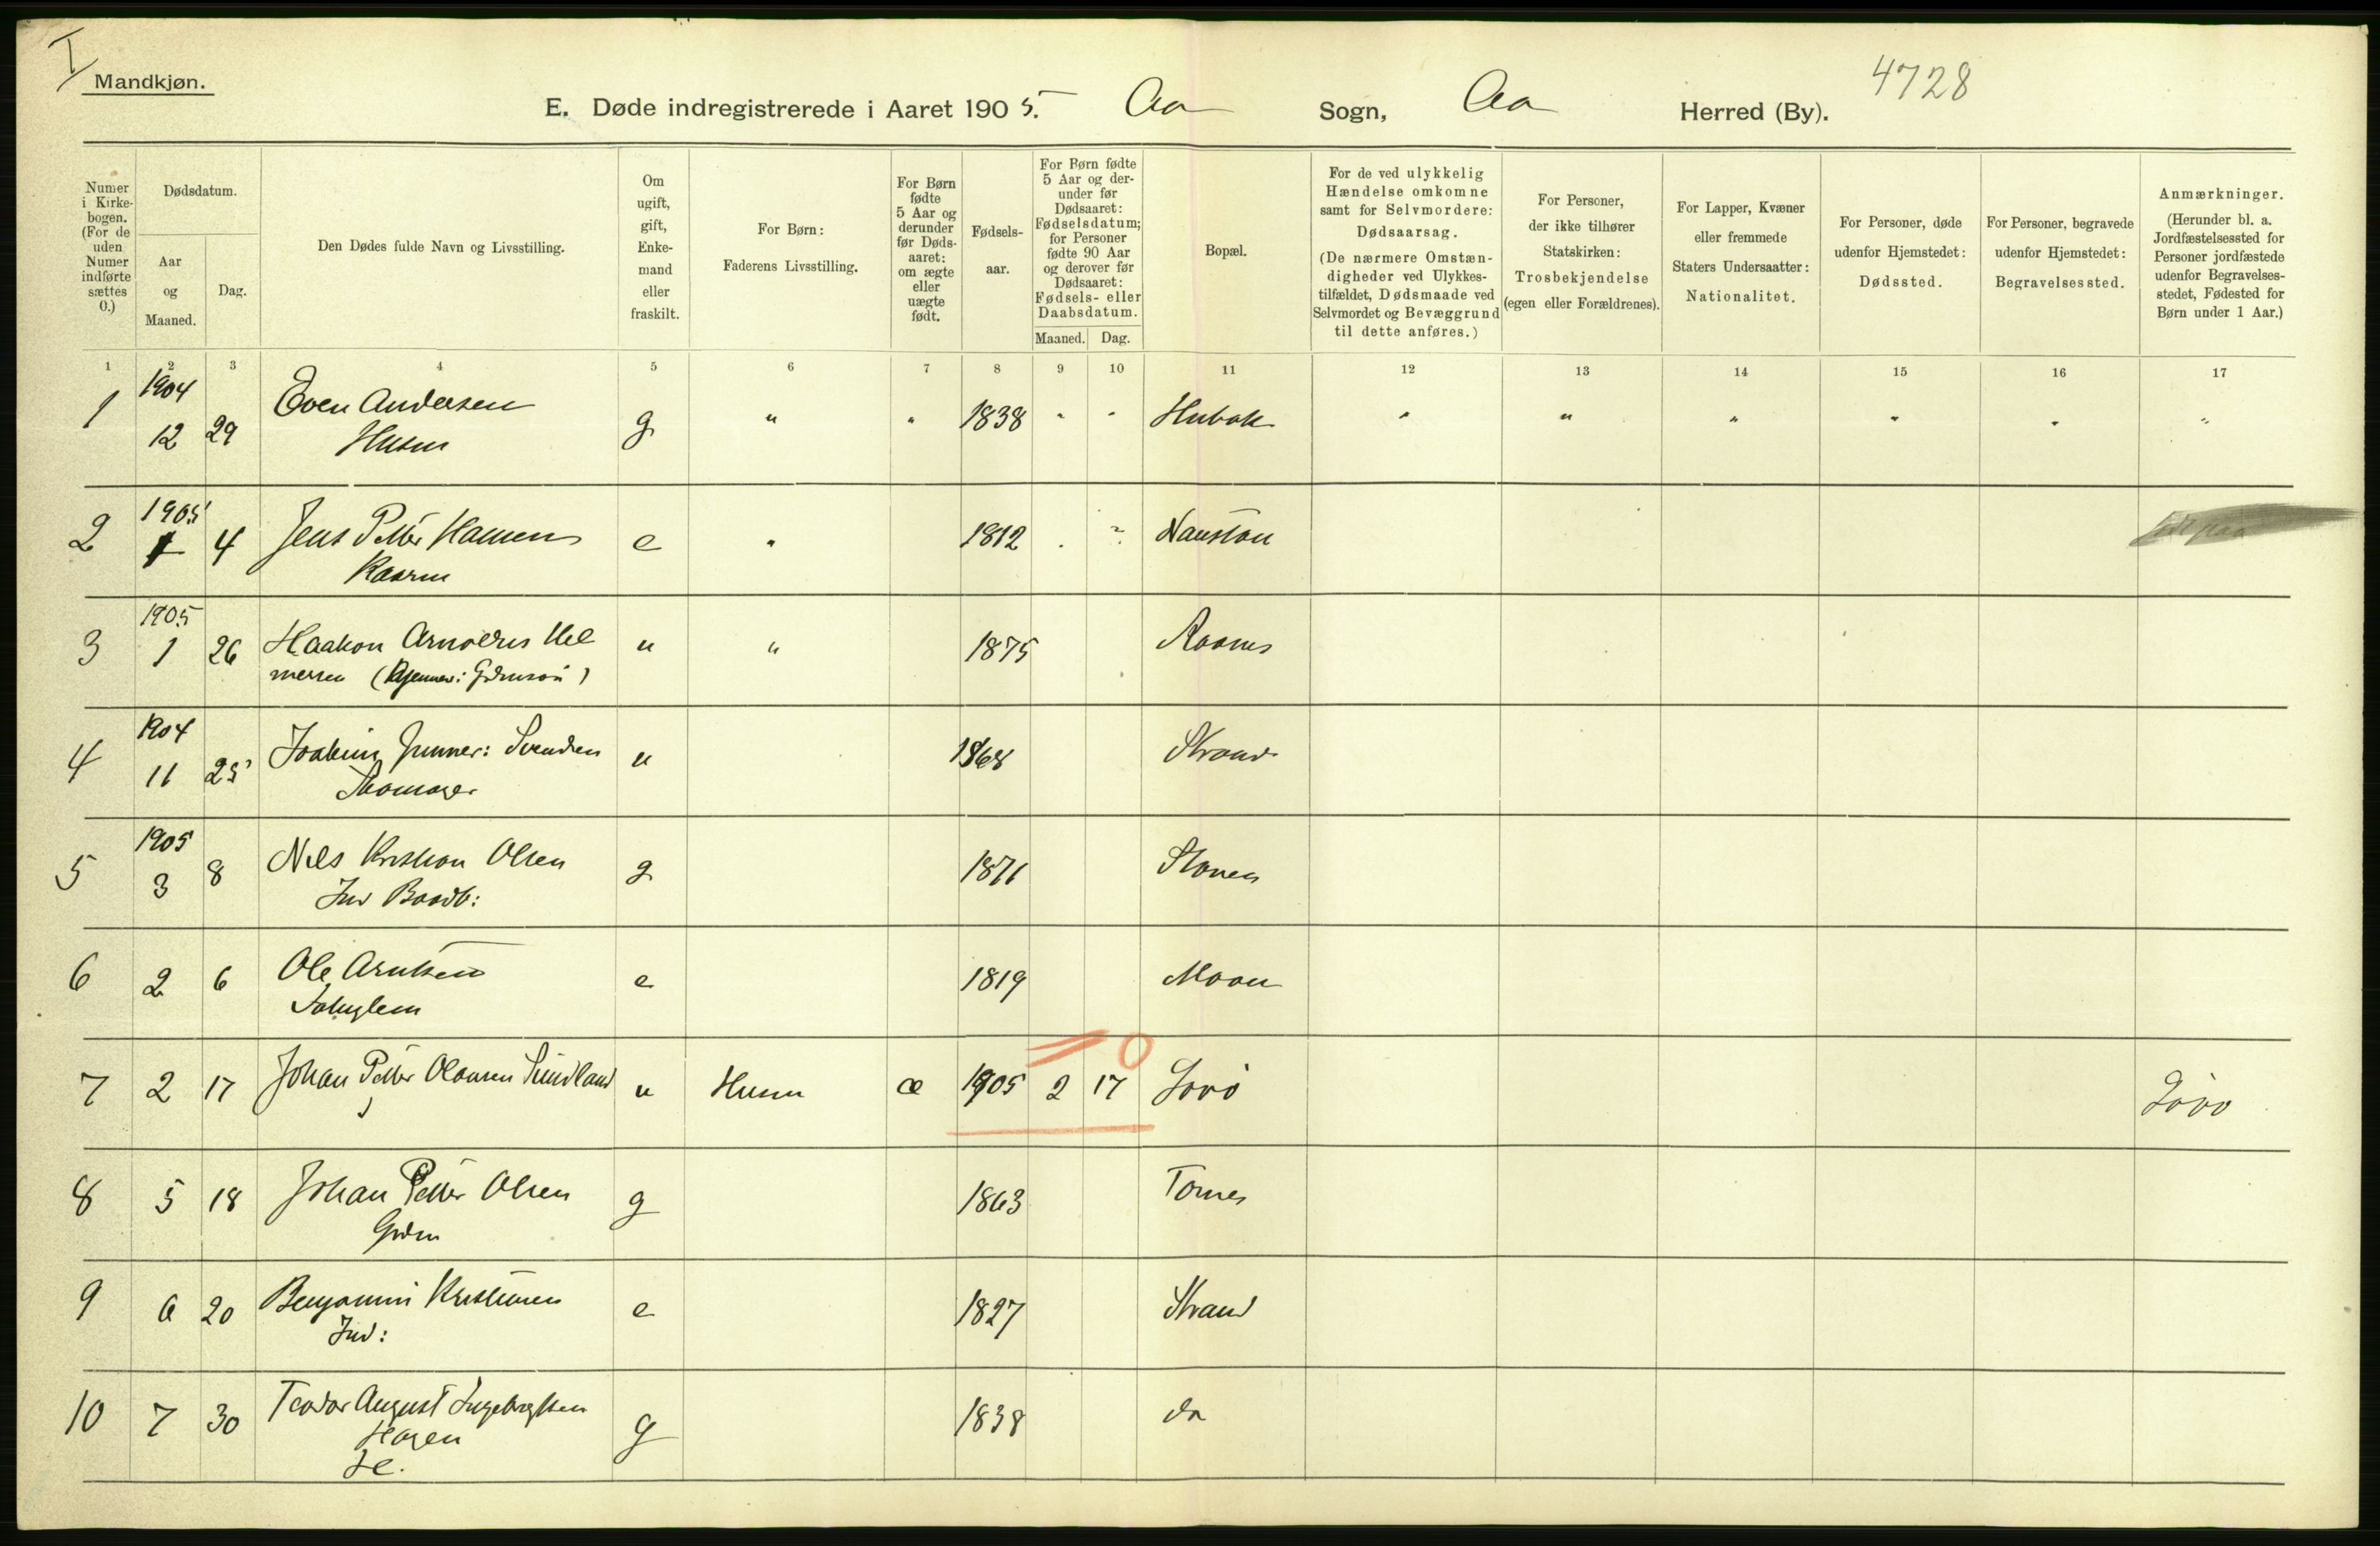 I
Mandkjøn.
4728
E. Døde indregistrerede i Aaret 1905. Aa Sogn, Aa Herred (By).
Numer i Kirkebogen. (For de uden Numer indførte sættes 0.)
Dødsdatum.
Aar og Maaned.
Dag.
Den Dødes fulde Navn og Livsstilling.
Om ugift, gift, Enkemand eller fraskilt.
For Børn: Faderens Livsstilling.
For Børn fødte 5 Aar og derunder før Dødsaaret: om ægte eller uægte født.
Fødselsaar.
For Børn fødte 5 Aar og derunder før Dødsaaret: Fødselsdatum; for Personer fødte 90 Aar og derover før Dødsaaret: Fødsels- eller Daabsdatum.
Maaned. Dag.
Bopæl.
For de ved ulykkelig Hændelse omkomne samt for Selvmordere: Dødsaarsag. (De nærmere Omstændigheder ved Ulykkestilfældet, Dødsmaade ved Selvmordet og Bevæggrund til dette anføres.)
For Personer, der ikke tilhører Statskirken: Trosbekjendelse (egen eller Forældrenes).
For Lapper, Kvæner eller fremmede Staters Undersaatter: Nationalitet.
For Personer, døde udenfor Hjemstedet: Dødssted.
For Personer, begravede udenfor Hjemstedet: Begravelsessted.
Anmærkninger. (Herunder bl. a. Jordfæstelsessted for Personer jordfæstede udenfor Begravelsesstedet, Fødested for Børn under 1 Aar.)
1 2 3 4 5 6 7 8 9 10 11 12 13 14 15 16 17
1904
1 12 29 Even Andersen g " " 1838 " " " " " " " "
Husm
1905
2 1 4 Jens Petter Hansen e " 1812 Naustan
Kaarm
1905
3 1 26 Haakon Arnoldus Hel u " 1875
mersen
1904
4 11 25 Joakim Svendsen u 1868 Strand
1905
5 3 8 Nils Kristian Olsen g 1871
Ind
6 2 6 Ole Arntsen e 1819 Moan
7 2 17 Johan Petter Olausen Sundland u Husm æ 1905 2 17 0
8 5 18 Johan Petter Olsen g 1863
Grdm
9 6 20 Benjamin Kristiansen e 1827 Strand
Ind:
10 7 30 Teodor August Ingebrigtsen g 1838 do
Hagen